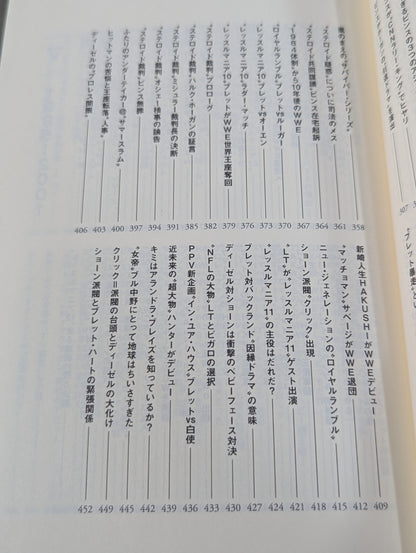 嵐のまえの“サバイバー・シリーズ” 358
“ステロイド疑惑”についに司法のメス 361
“ステロイド共同謀議”ビンス在宅起訴 364
“1984体制”から10年後のWWE 367
“ロイヤルランブル”ブレットvsルーガー 370
“レッスルマニア10”ブレットvsオーエン 373
“レッスルマニア10”ラダー・マッチ 376
“レッスルマニア10”ブレットがWWE世界王座奪回 379
“ステロイド裁判”プロローグ 382
“ステロイド裁判”ハルク・ホーガンの証言 385
“ステロイド裁判”ミシュラー裁判長の決断 391
“ステロイド裁判”オシェー検事の論告 394
“ステロイド裁判”ビンス無罪 397
ふたりのアンダーテイカー@“サマースラム” 400
ヒットマンの苦悩と王座転落“人事” 403
ディーゼルの“プロレス開眼” 406
新崎人生HAKUSHIがWWEデビュー 409
“マッチョマン”サベージがWWE退団 412
ニュー・ジェネレーションの“ロイヤルランブル” 415
ショーン派閥“クリック”出現 418
“LT”が“レッスルマニア11”ゲスト出演 421
“レッスルマニア11”の主役はだれだ? 424
ブレット対バックランド“因縁ドラマ”の意味 427
ディーゼル対ショーンは衝撃のベビーフェース対決 430
“NFLの大物”LTとビガロの選択 433
PPV新企画“イン・ユア・ハウス”ブレットvs白使 436
近未来の“超大物”ハンターがデビュー 439
キミはアランドラ・ブレイズを知っているか? 442
“女帝”ブル中野にとって地球はちいさすぎた 445
クリック=派閥の台頭とディーゼルの大化け 449
ショーン派閥とブレット・ハートの緊張関係 452